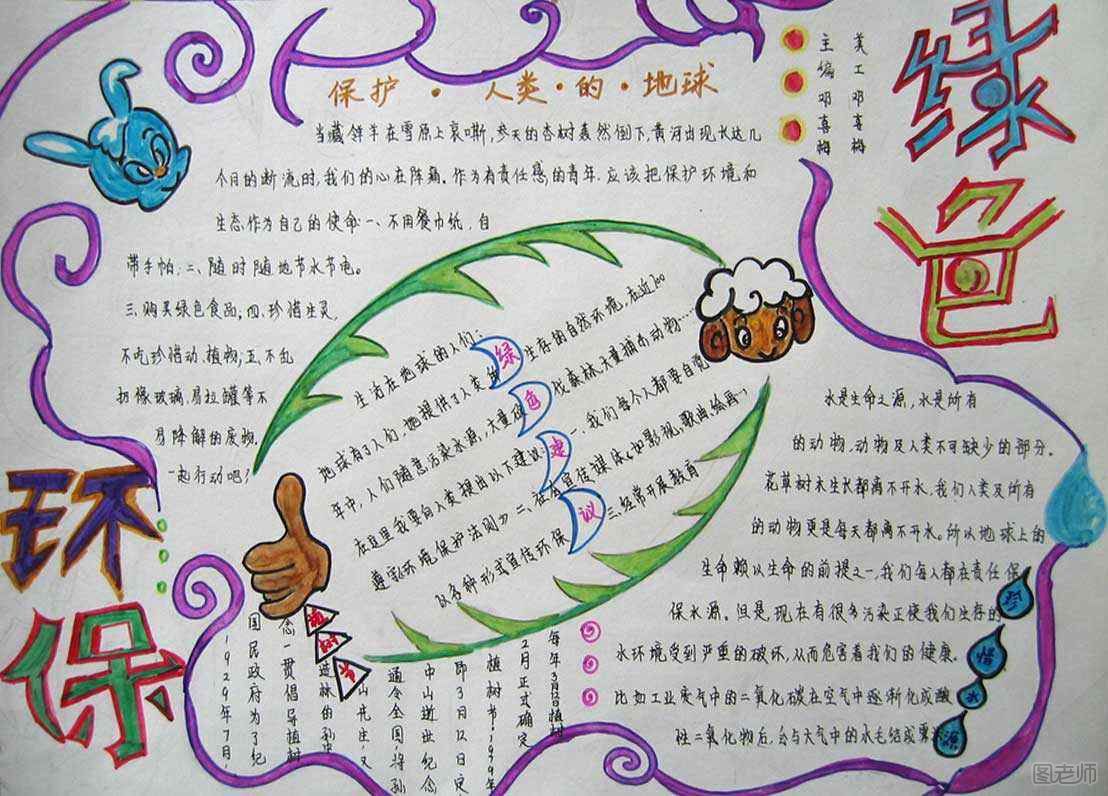 绿色
环保
主编 邓喜梅
美工 邓喜梅
保护·人类·的·地球
当藏羚羊在雪原上哀嘶,参天的杏树轰然倒下,黄河出现长达几
个月的断流时,我们的心在阵痛。作为有责任感的青年.应该把保护环境和
生态作为自己的使命:一、不用餐巾纸,自
带手帕;二、随时随地节水节电。
三.购买绿色食品;四.珍惜生灵,
不吃珍惜动.植物;五、不乱
扔像玻璃.易拉罐等不
易降解的废物.
一起行动吧!
绿色建议
生活在地球的人们:
地球有了人们.她提供了人类生存的自然环境,在近100
年中,人们随意污染水源,大量砍伐森林大量捕杀动物……
在这里我要向人类提出以下建议:一、我们每个人都要自觉
遵守《环境保护法则》 二、在各宣传媒体,如影视.歌曲绘画
以各种形式宣传环保 三.经常开展教育
植树节
每年3月12日植树
2月正式确定
植树节,1979年
即3月12日定
中山逝世纪念
通令全国,将孙
山先生,又
念一贯倡导植树
国民政府为了纪
1929年7月,
水是生命之源,水是所有
的动物,动物及人类不可缺少的部分.
花草树木生长都离不开水,我们人类及所有
的动物更是每天都离不开水。所以地球上的
生命赖以生命的前提之一,我们每人都在责任保
保水源。但是,现在有很多污染正使我们生存的
水环境受到严重的破坏,从而危害着我们的健康。
比如工业废气中的二氧化碳在空气中逐渐化成酸
性二氧化物后,会与大气中的水毛结成
珍惜水源
图老师